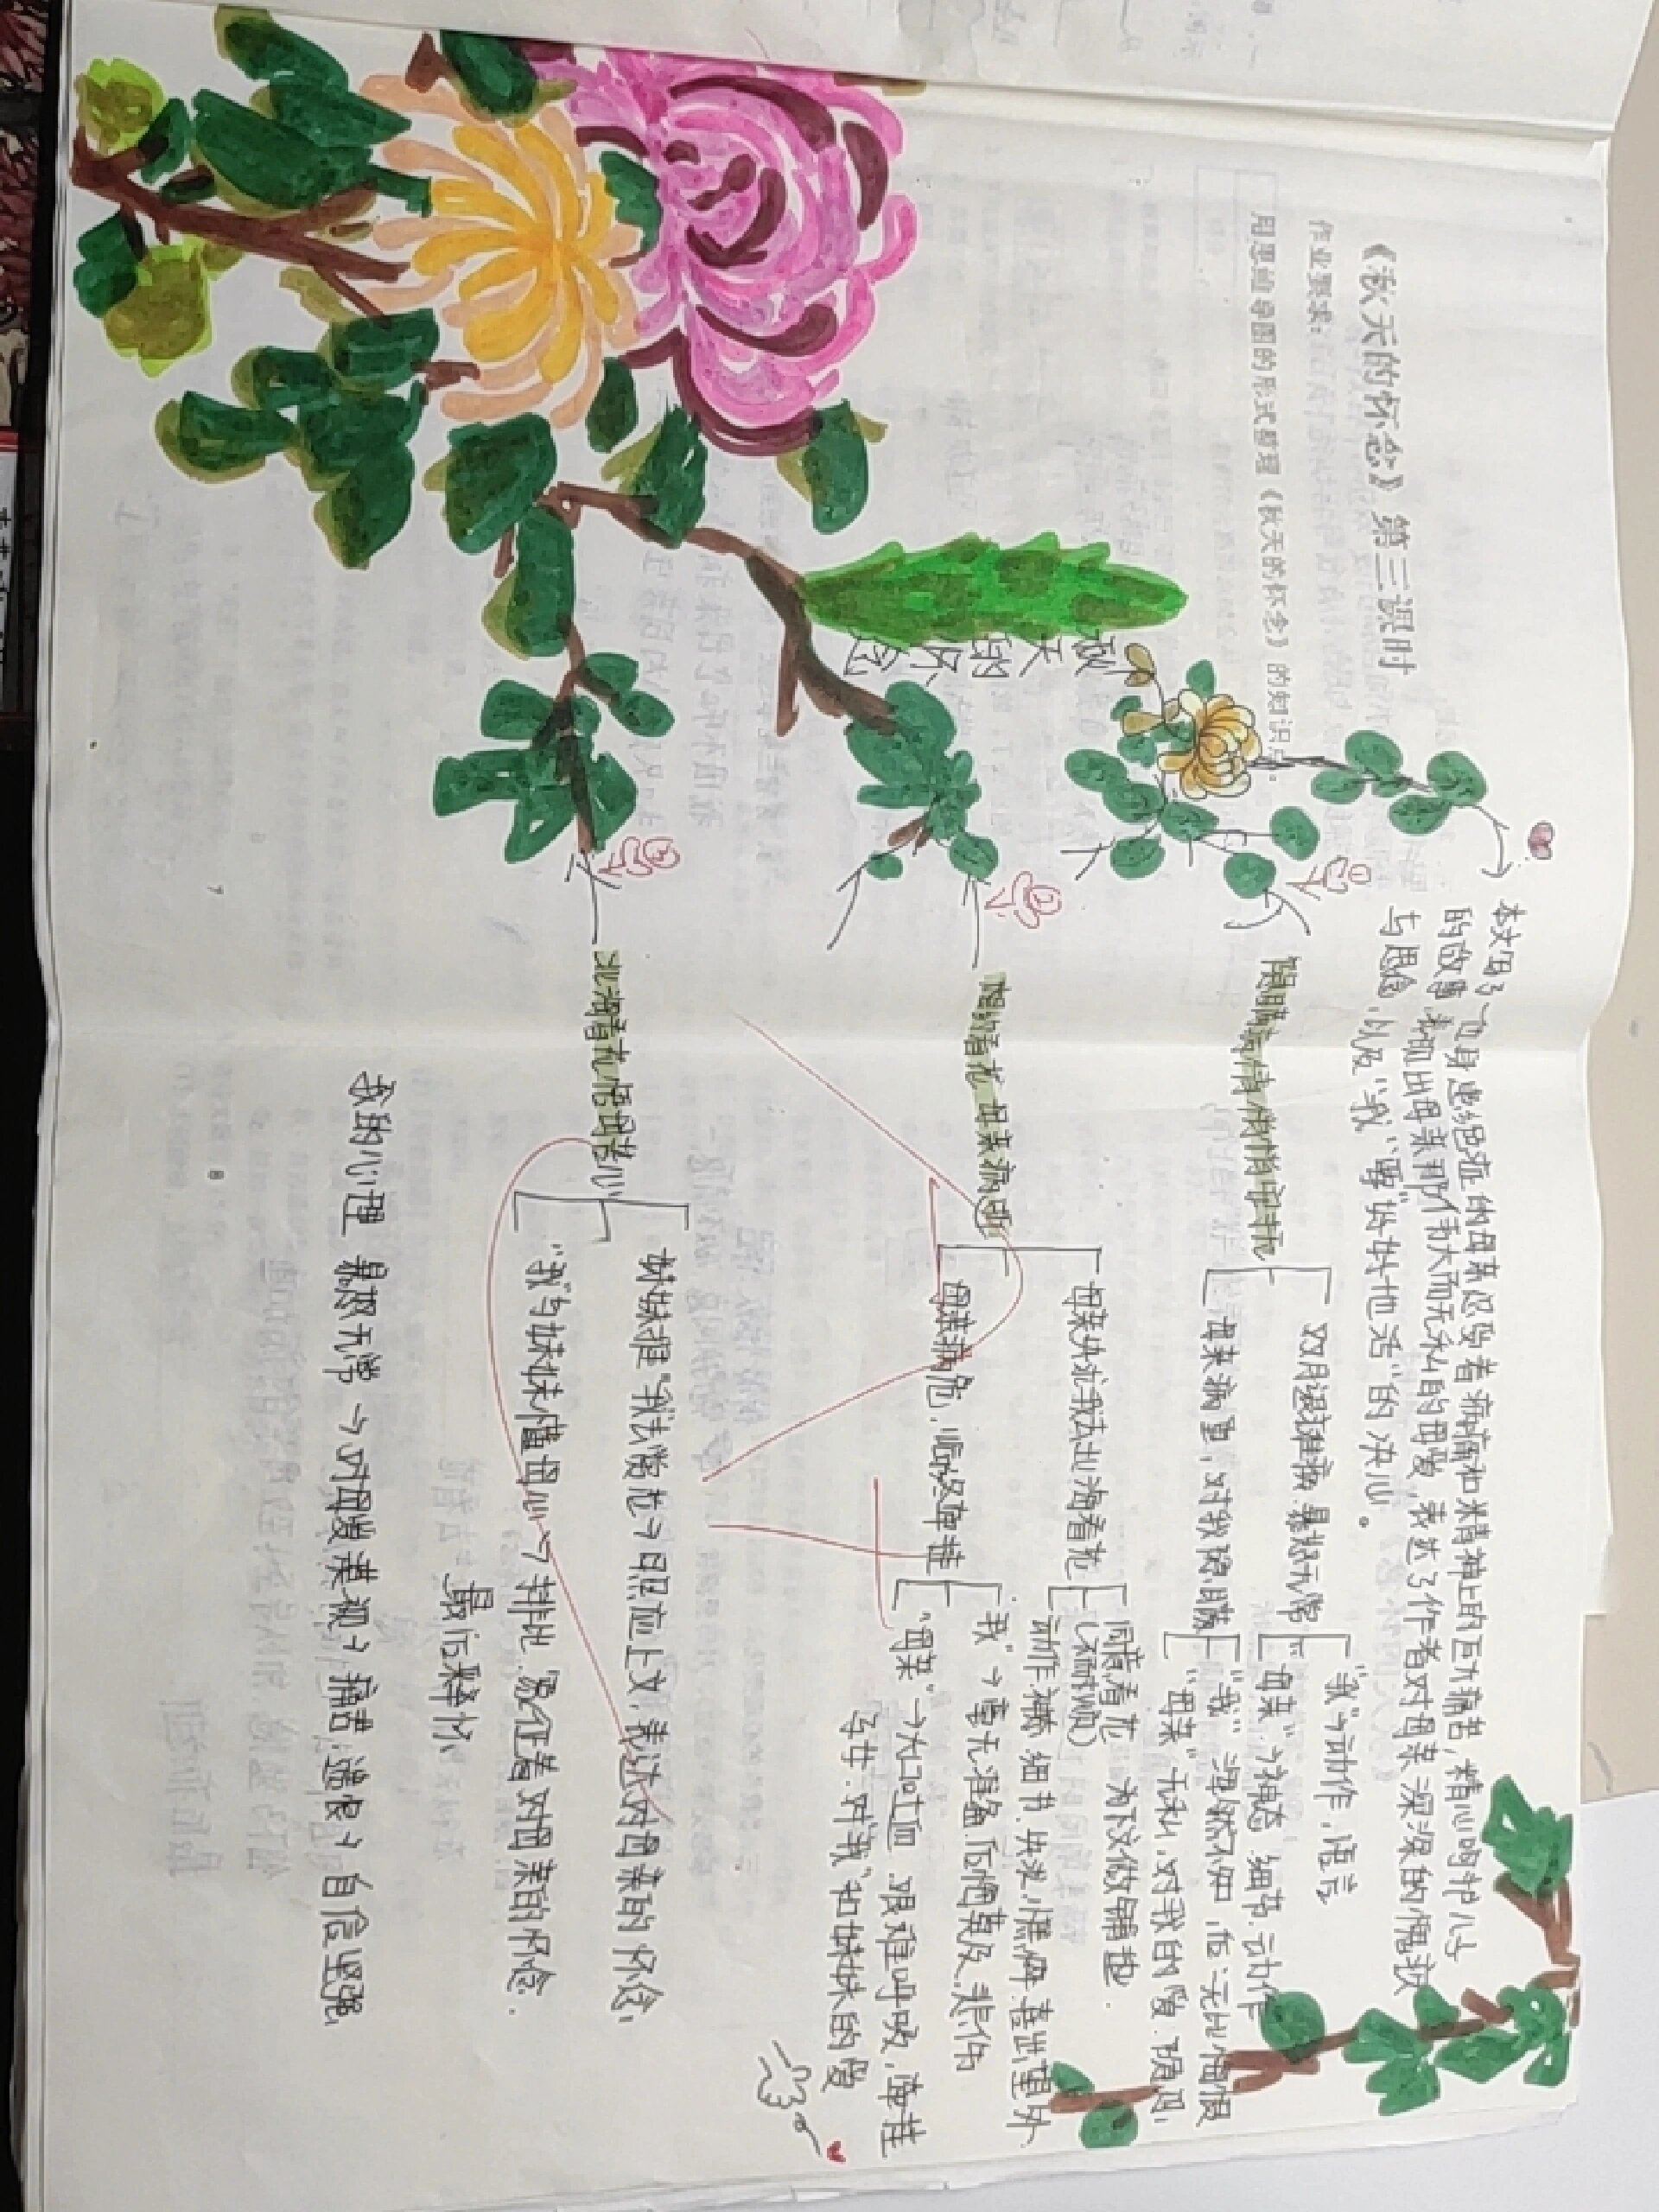 《秋天的怀念》第三课时
作业要求：
用思维导图的形式整理《秋天的怀念》的知识点。
秋天的怀念
本文写了一位身患绝症的母亲忍受着病痛和精神上的巨大痛苦，精心呵护儿子
的故事，表现出母亲那伟大而无私的母爱，表达了作者对母亲深深的愧疚
与思念，以及“我”要“好好地活”的决心。
隐瞒病情 悄悄守护
双腿瘫痪 暴怒无常
“我”→动作，语言
“母亲”→神态 细节 动作
母亲病重，对我隐瞒
“我” 浑然不知，后无比悔恨
“母亲”无私，对我的爱，隐忍，
想给看花 母亲病逝
母亲央求我去北海看花
同意看花 为下文做铺垫．
动作，神态，细节，央求，憔悴，喜出望外
母亲病危，临终牵挂
“我”→毫无准备，后悔莫及，悲伤
“母亲”→大口吐血 艰难呼吸，牵挂
子女．对“我”和妹妹的爱
北海看花 悟母苦心
妹妹推“我”去赏花→照应上文，表达对母亲的怀念，
“我”与妹妹懂母心→ 象征着对母亲的怀念．
最后释怀
我的心理 暴怒无常→对母爱漠视→痛苦，遗恨→自信坚强
7
8